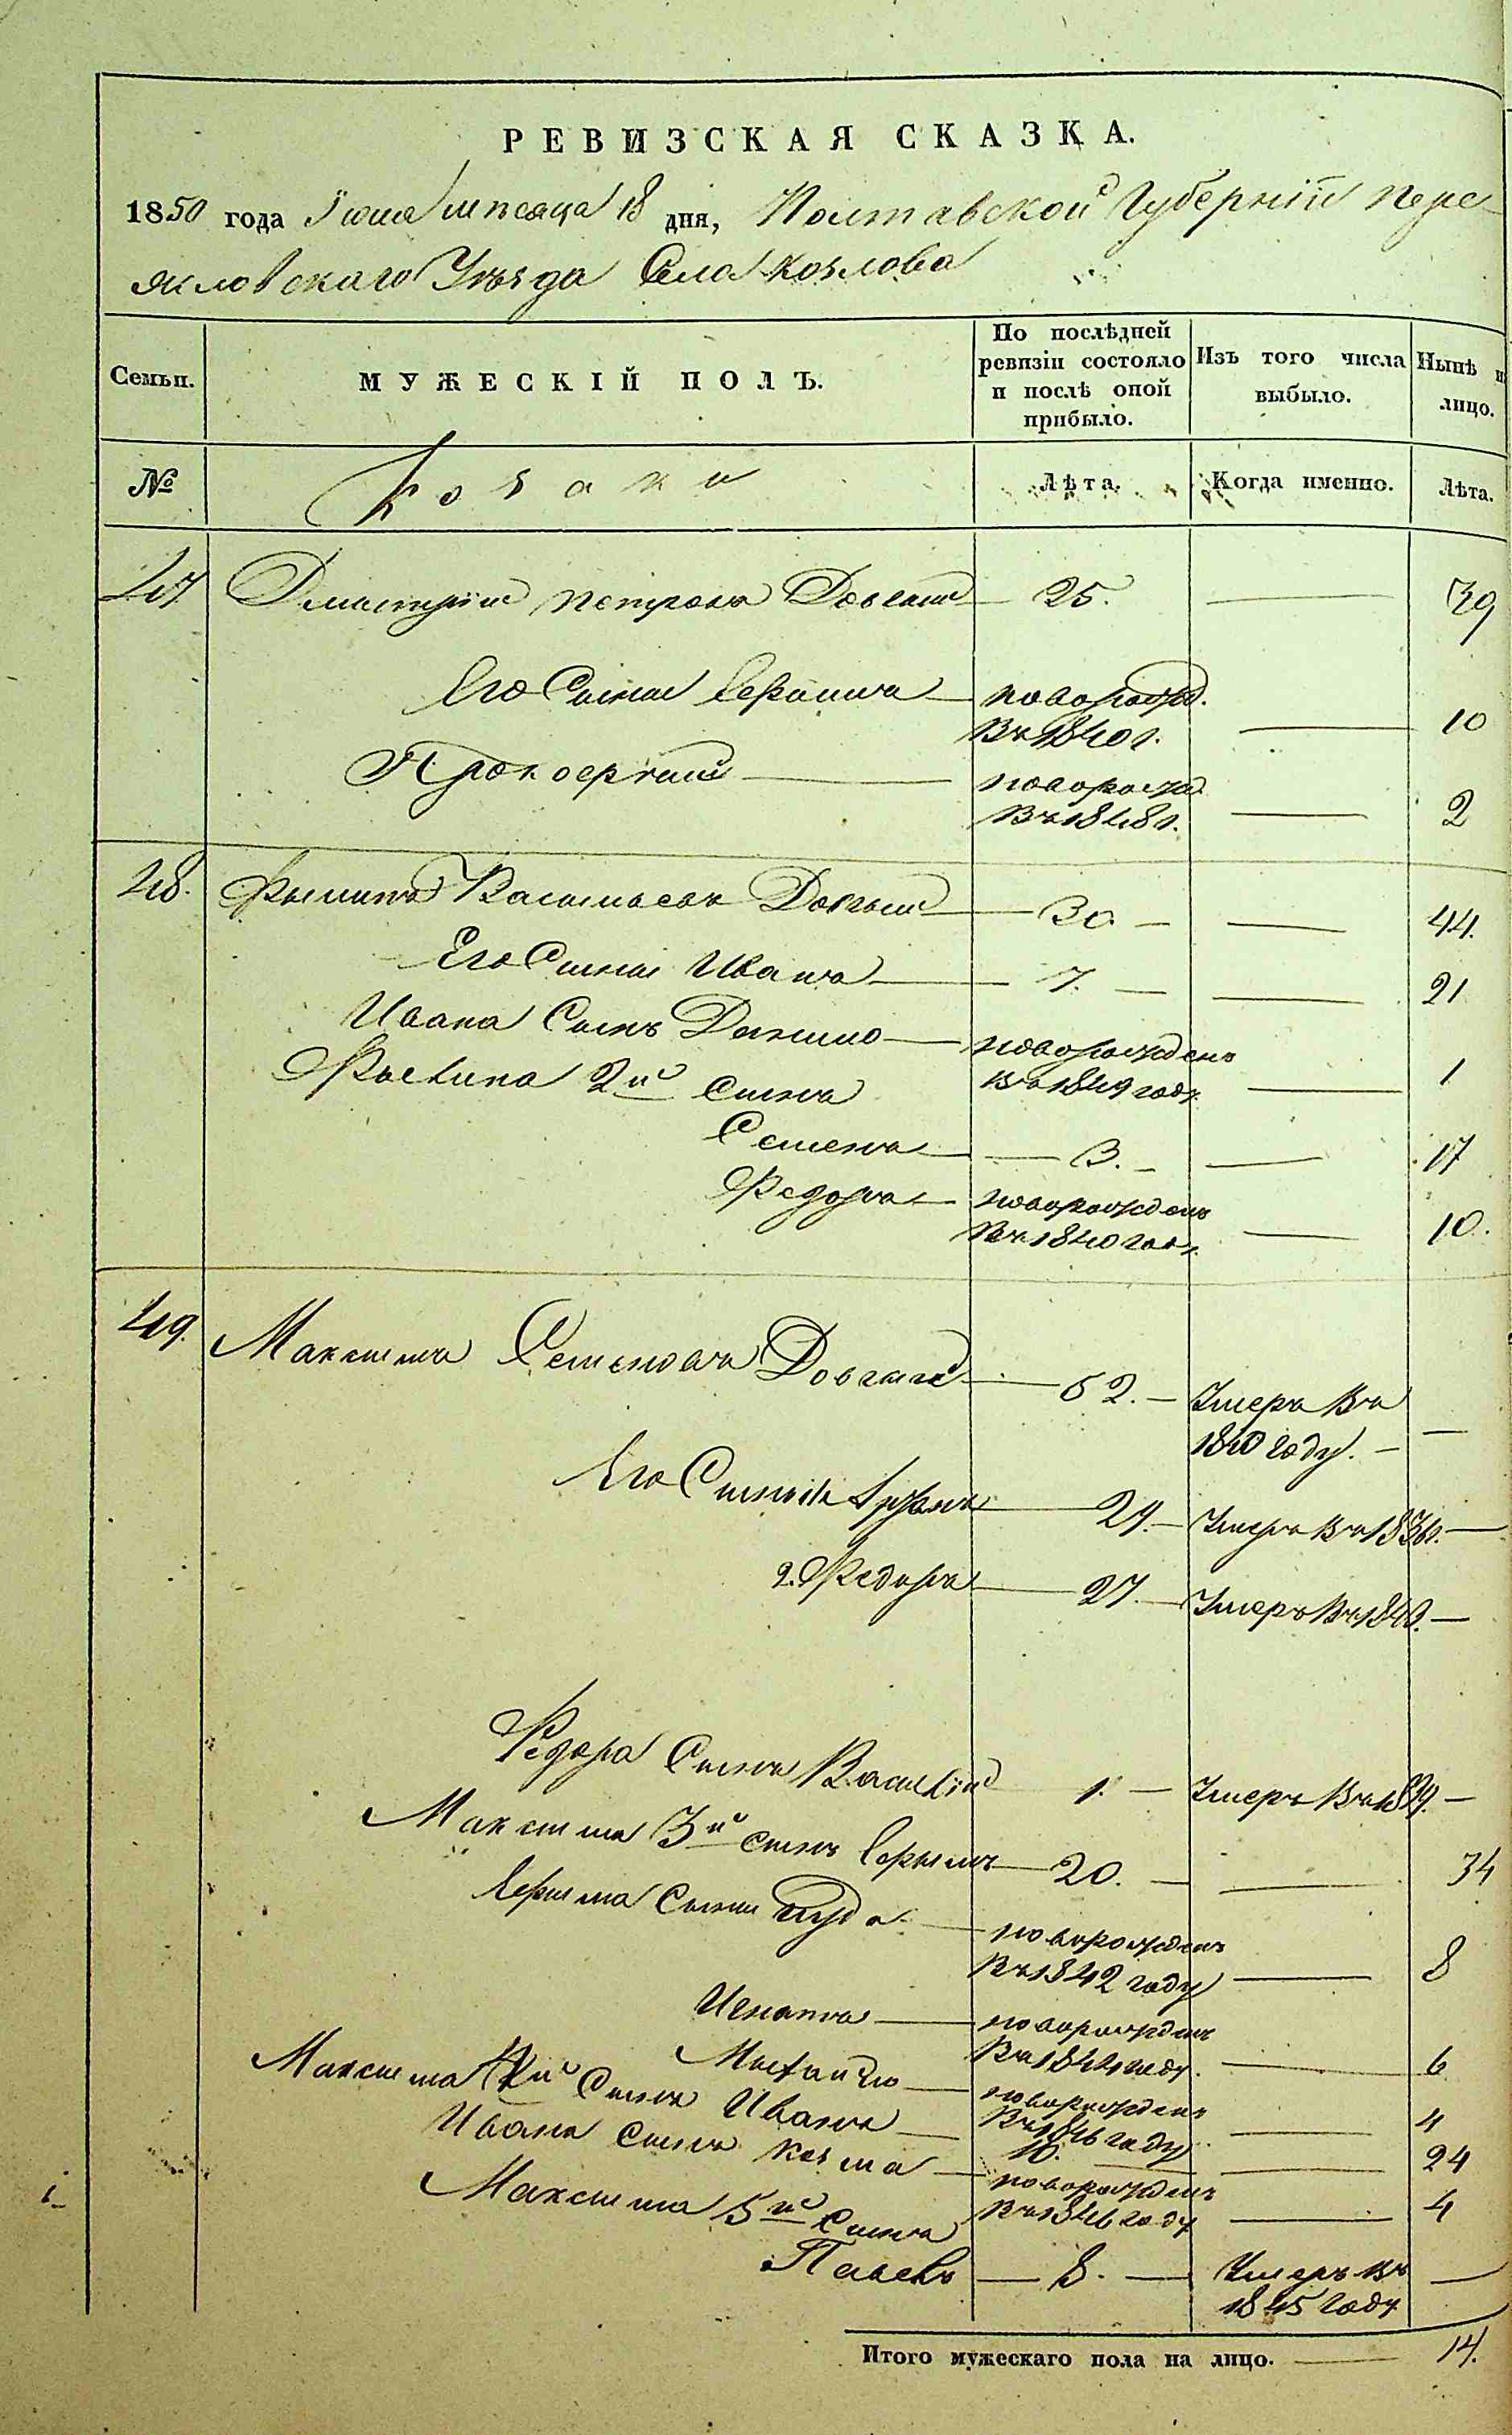 РЕВИЗСКАЯ СКАЗКА.
1850 года Іюня мѣсяца 18 дня, Полтавской Губерніи Пере-
яславскаго Уѣзда Села Козлова
Семьи. МУЖЕСКІЙ ПОЛЪ. По послѣдней ревизіи состояло и послѣ оной прибыло. Изъ того числа выбыло. Нынѣ н лицо.
№ Козаки Лѣта. Когда именно. Лѣта.
47 Дмитрій Петровъ Довгий 25. 39
Его Сыны Ефимъ новорожд. 10
Въ 1840 г.
Прокофий новорожд. 2
Въ 1848 г.
48. Филипъ Васильевъ Довгий 30. 44.
Его Сыны Иванъ 7. 21
Ивана Сынъ Данило новорожденъ 1
Въ 1849 году
Филипа 2й сынъ
Семенъ 3. 17
Федоръ новорожденъ 10.
Въ 1840 году
49. Максимъ Семеновъ Довгий 52. Умеръ Въ
1840 году.
Его Сыновья 29. Умеръ Въ 1836 г.
2. Федоръ 27. Умеръ Въ 1843.
Федора Сынъ Василій 1. Умеръ Въ
Максима 3й сынъ Ефимъ 20. 34
Ефима Сыны новорожденъ 8
Въ 1842 году
Игнатъ новорожденъ 6
Въ 1844 году.
Михайло новорожденъ 4
Въ 1846 году
Максима 4й Сынъ Иванъ 10. 24
Ивана Сынъ Козма новорожденъ 4
Въ 1846 году
Максима 5й Сынъ
Павелъ 8. Умеръ Въ
1845 году
Итого мужескаго пола на лицо. 14.